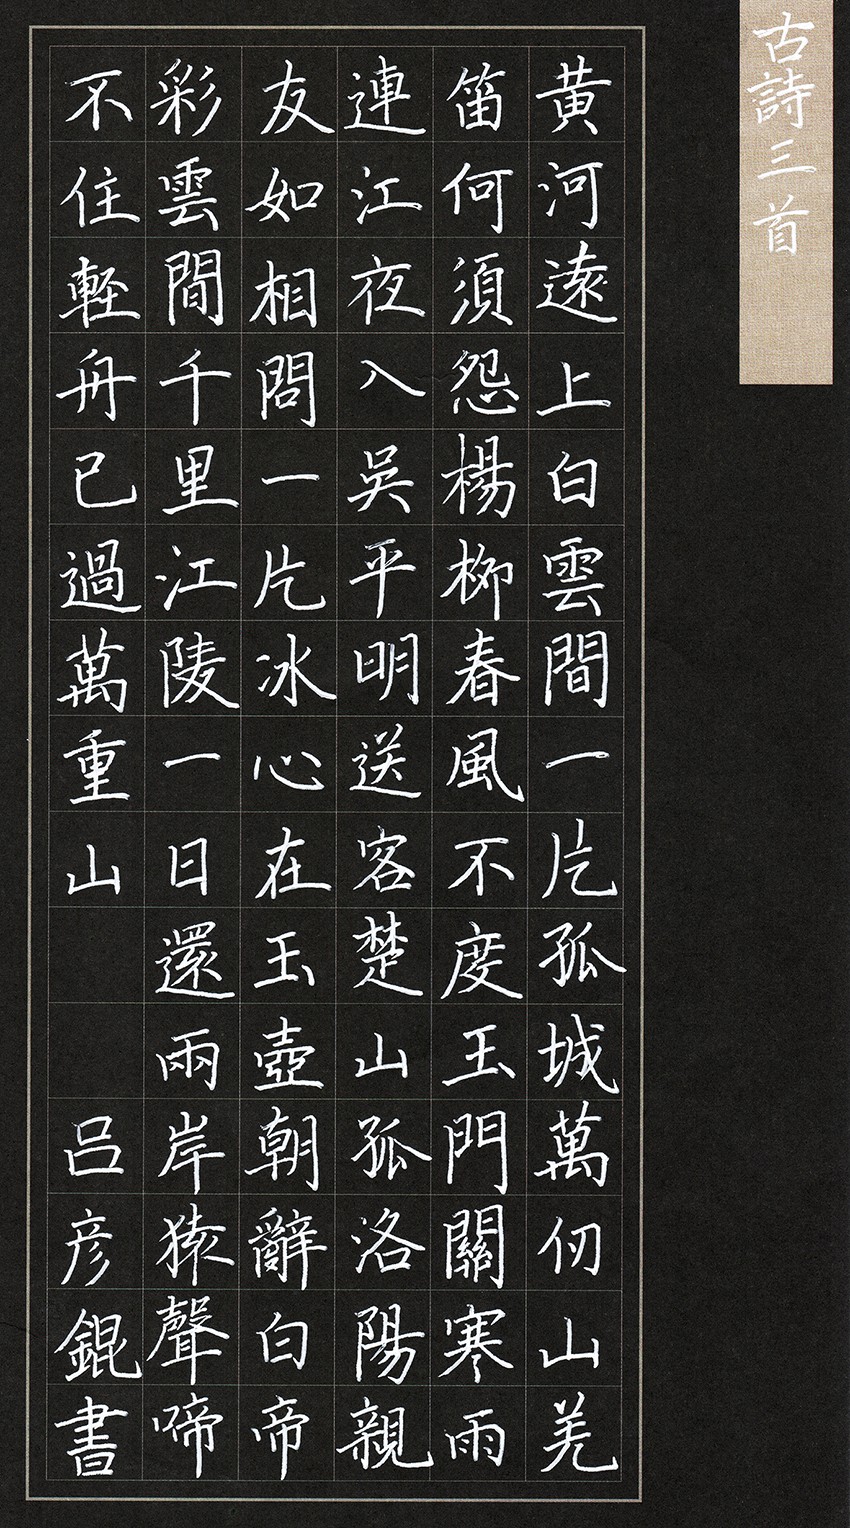 古詩三首
黃河遠上白雲間一片孤城萬仞山羌
笛何須怨楊柳春風不度玉門關寒雨
連江夜入吳平明送客楚山孤洛陽親
友如相問一片冰心在玉壺朝辭白帝
彩雲間千里江陵一日還兩岸猿聲啼
不住輕舟已過萬重山 吕彦錕書